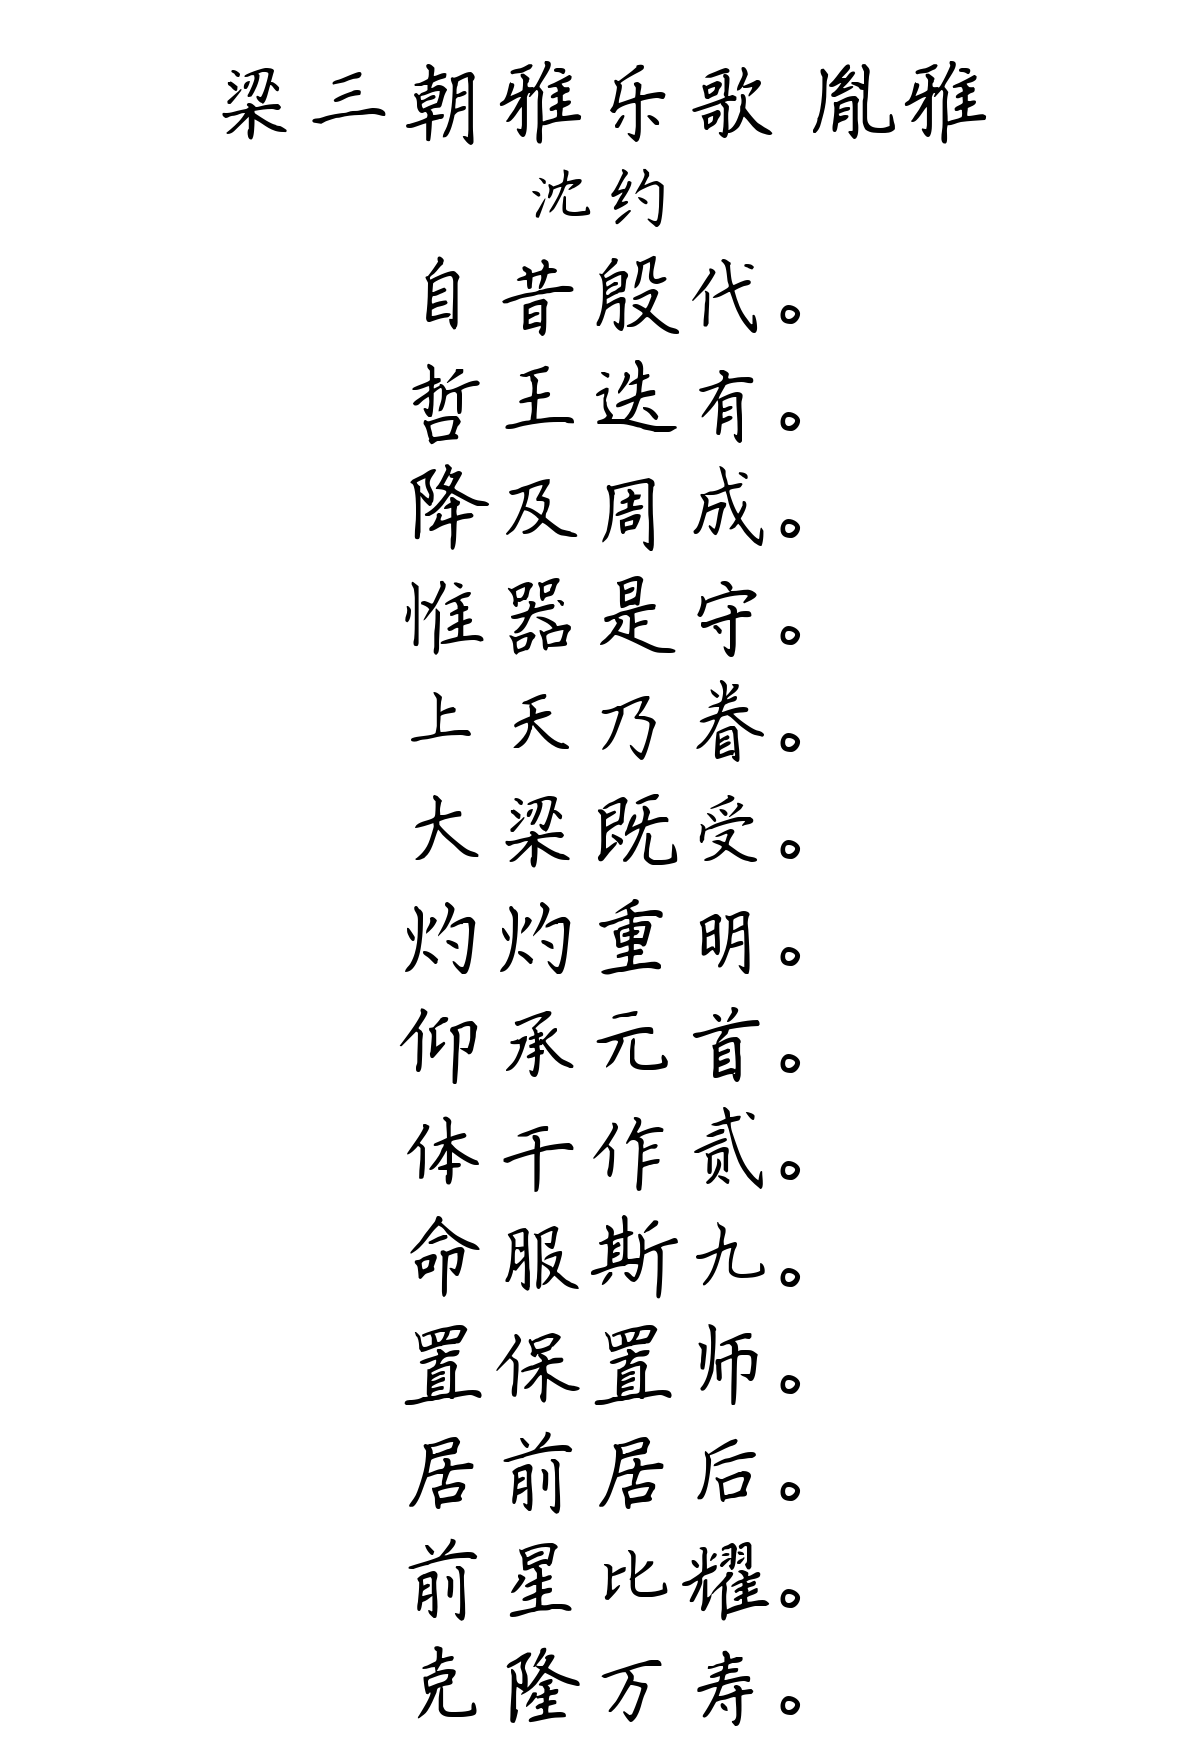 梁三朝雅乐歌 胤雅
沈约
自昔殷代。
哲王迭有。
降及周成。
惟器是守。
上天乃眷。
大梁既受。
灼灼重明。
仰承元首。
体干作贰。
命服斯九。
置保置师。
居前居后。
前星比耀。
克隆万寿。